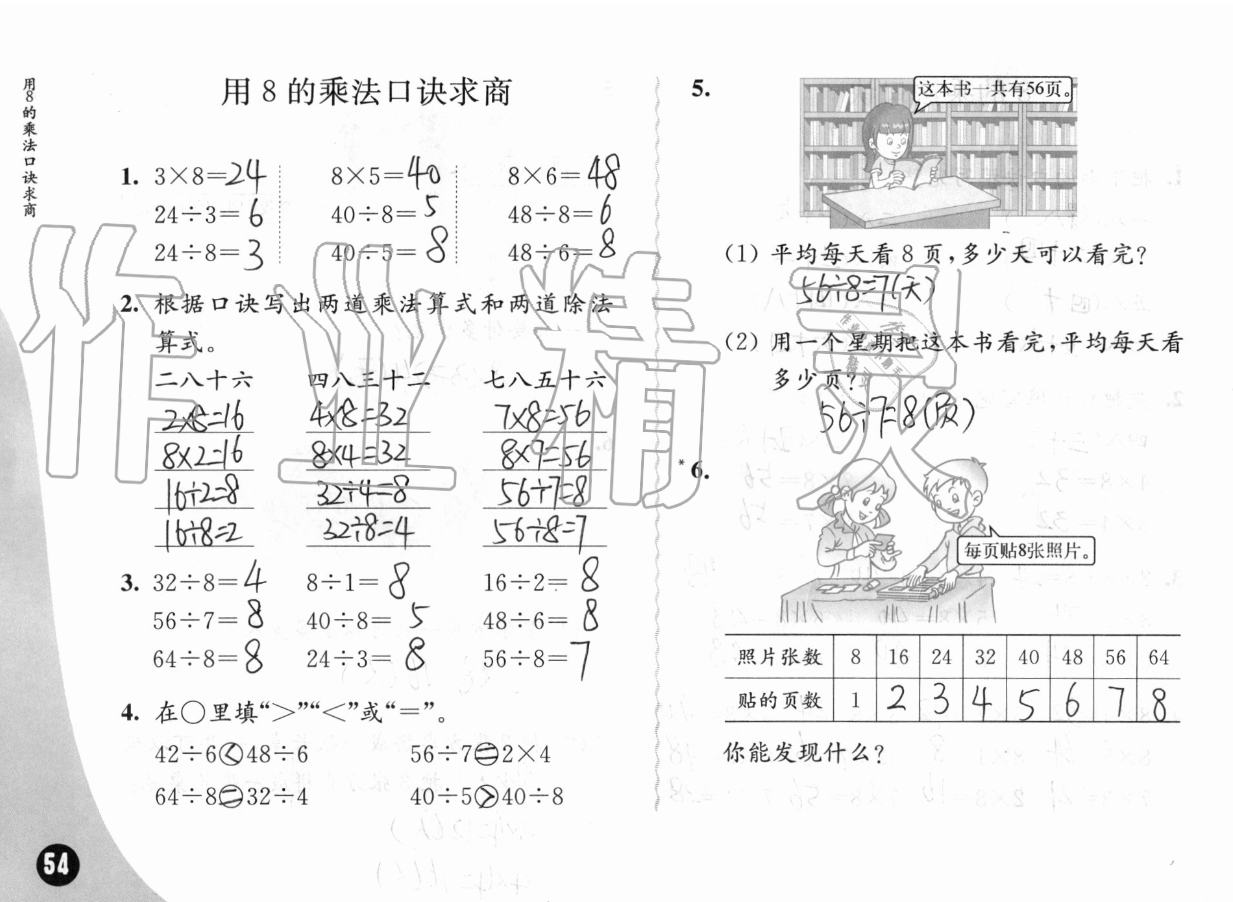 用8的乘法口诀求商
用 8 的乘法口诀求商
1. 3×8=24 8×5=40 8×6=48
24÷3=6 40÷8=5 48÷8=6
24÷8=3 40÷5=8 48÷6=8
2. 根据口诀写出两道乘法算式和两道除法
算式。
二八十六 四八三十二 七八五十六
2×8=16 4×8=32 7×8=56
8×2=16 8×4=32 8×7=56
16÷2=8 32÷4=8 56÷7=8
16÷8=2 32÷8=4 56÷8=7
3. 32÷8=4 8÷1=8 16÷2=8
56÷7=8 40÷8=5 48÷6=8
64÷8=8 24÷3=8 56÷8=7
4. 在○里填“>”“<”或“=”。
42÷6<48÷6 56÷7=2×4
64÷8=32÷4 40÷5>40÷8
54
5.
这本书一共有56页。
(1) 平均每天看 8 页,多少天可以看完?
56÷8=7(天)
(2) 用一个星期把这本书看完,平均每天看
多少页?
56÷7=8(页)
*6.
每页贴8张照片。
照片张数 8 16 24 32 40 48 56 64
贴的页数 1 2 3 4 5 6 7 8
你能发现什么?
作业精灵